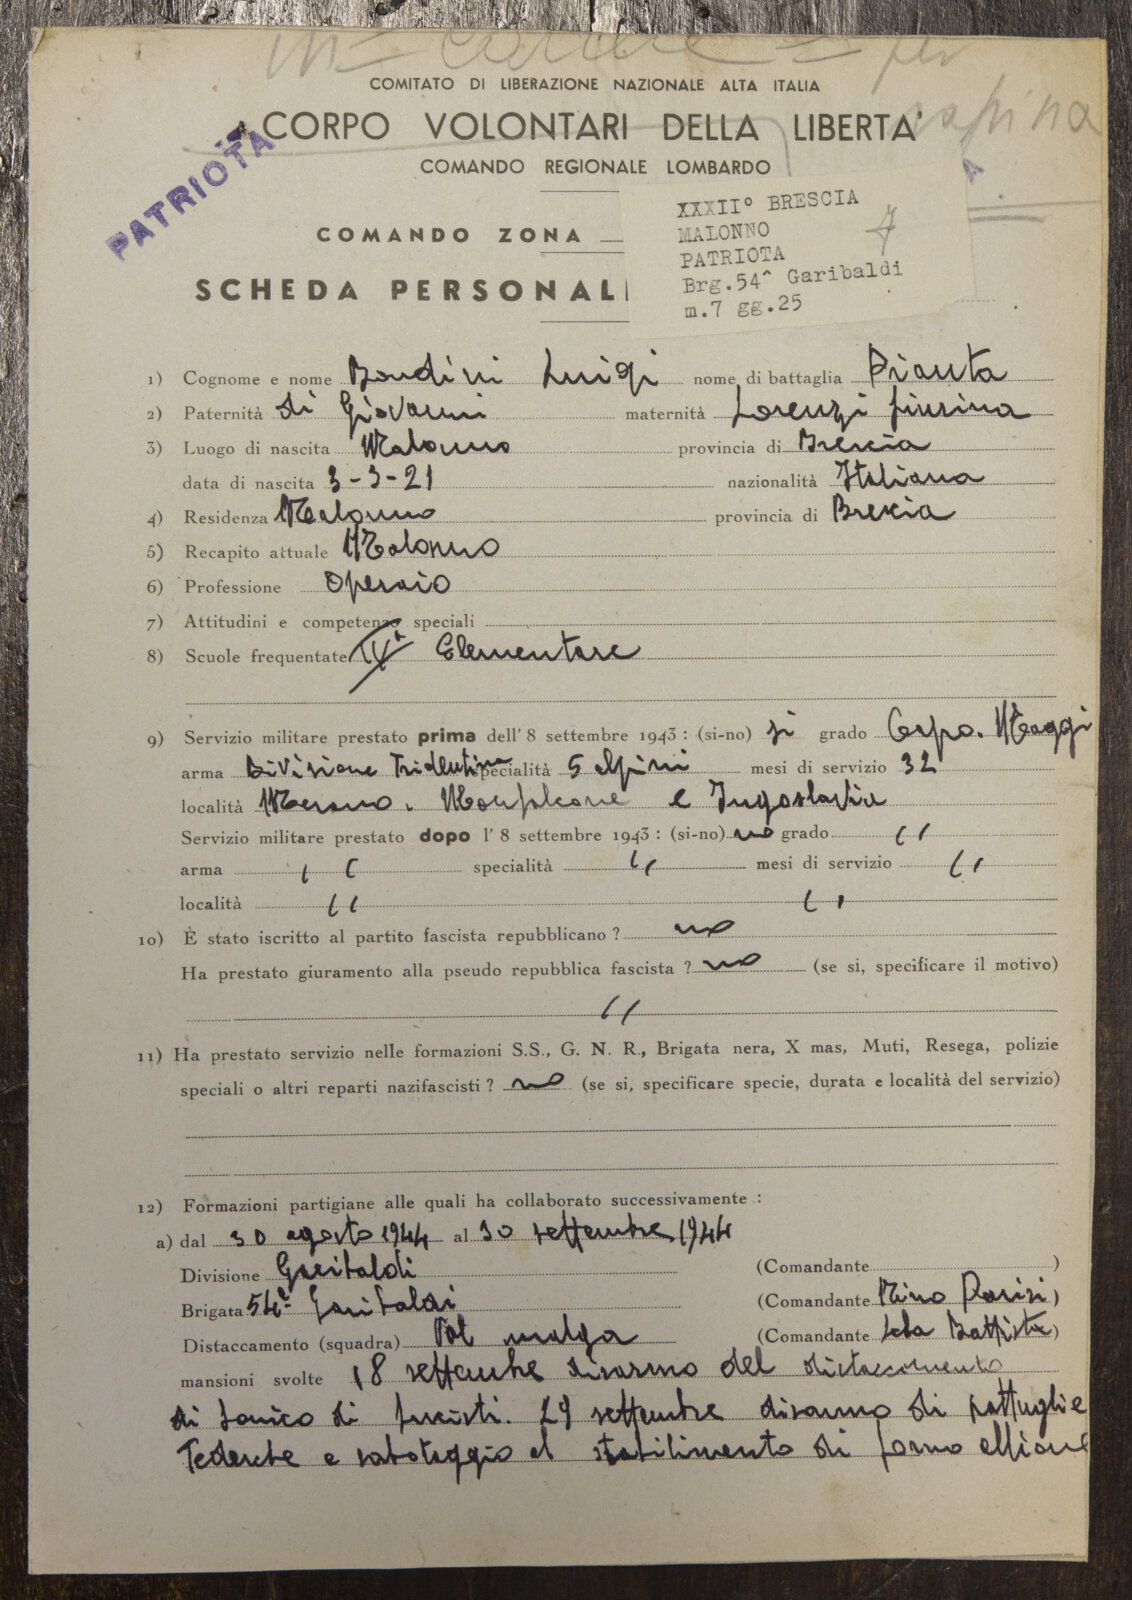 in carcere per
rapina
COMITATO DI LIBERAZIONE NAZIONALE ALTA ITALIA
CORPO VOLONTARI DELLA LIBERTA'
COMANDO REGIONALE LOMBARDO
PATRIOTA
COMANDO ZONA
SCHEDA PERSONAL
XXXII° BRESCIA
MALONNO
PATRIOTA
Brg.54^ Garibaldi
m.7 gg.25
7
1) Cognome e nome Bondini Luigi nome di battaglia Pianta
2) Paternità di Giovanni maternità Lorenzi
3) Luogo di nascita Malonno provincia di Brescia
data di nascita 3-3-21 nazionalità Italiana
4) Residenza Malonno provincia di Brescia
5) Recapito attuale Malonno
6) Professione Operaio
7) Attitudini e competenze speciali
8) Scuole frequentate IVª Elementare
9) Servizio militare prestato prima dell'8 settembre 1943: (si-no) si grado Corpo. Maggi
arma Divisione Tridentina specialità 5 alpini mesi di servizio 32
località Merano. Monfalcone e Jugoslavia
Servizio militare prestato dopo l'8 settembre 1943: (si-no) no grado "
arma " specialità " mesi di servizio "
località " "
10) È stato iscritto al partito fascista repubblicano? no
Ha prestato giuramento alla pseudo repubblica fascista? no (se si, specificare il motivo)
"
11) Ha prestato servizio nelle formazioni S.S., G. N. R., Brigata nera, X mas, Muti, Resega, polizie
speciali o altri reparti nazifascisti? no (se si, specificare specie, durata e località del servizio)
12) Formazioni partigiane alle quali ha collaborato successivamente:
a) dal 30 agosto 1944 al 30 settembre 1944
Divisione Garibaldi (Comandante )
Brigata 54ª Garibaldi (Comandante Nino Parisi)
Distaccamento (squadra) Val malga (Comandante Battista)
mansioni svolte 18 settembre disarmo del distaccamento
di Sonico di fascisti. 29 settembre disarmo di pattuglie
Tedesche e sabotaggio al stabilimento di forno allione